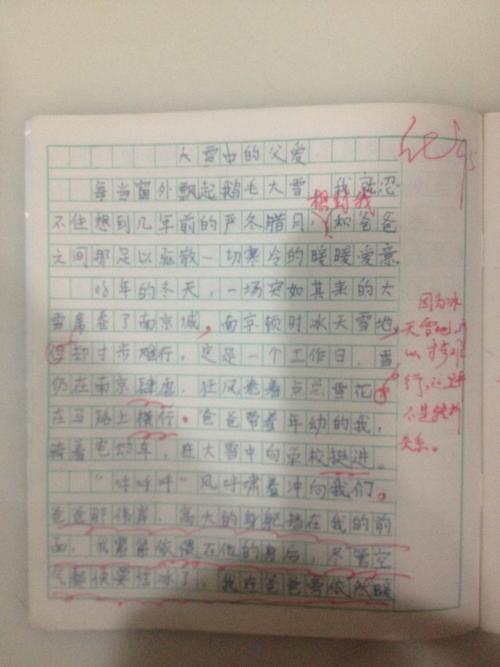 大雪中的父爱
每当窗外飘起鹅毛大雪,我就忍
想到我
不住想到几年前的严冬腊月,和爸爸
之间那足以驱散一切寒冷的暖暖爱意
年的冬天,一场突如其来的大
雪席卷了南京城,南京顿时冰天雪地
但却寸步难行。这是一个工作日,雪
仍在南京肆虐,狂风卷着点点雪花
在马路上横行。爸爸带着年幼的我,
骑着电动车,在大雪中向学校挺进。
“呼呼呼”风呼啸着冲向我们,
爸爸那伟岸、高大的身躯挡在我的前
面,我紧紧依偎在他的身后,尽管空
气都快要结冰了,我在爸爸身依然暖
因为冰
天雪地,所
以寸步难
行,这里并
不是转折
关系。